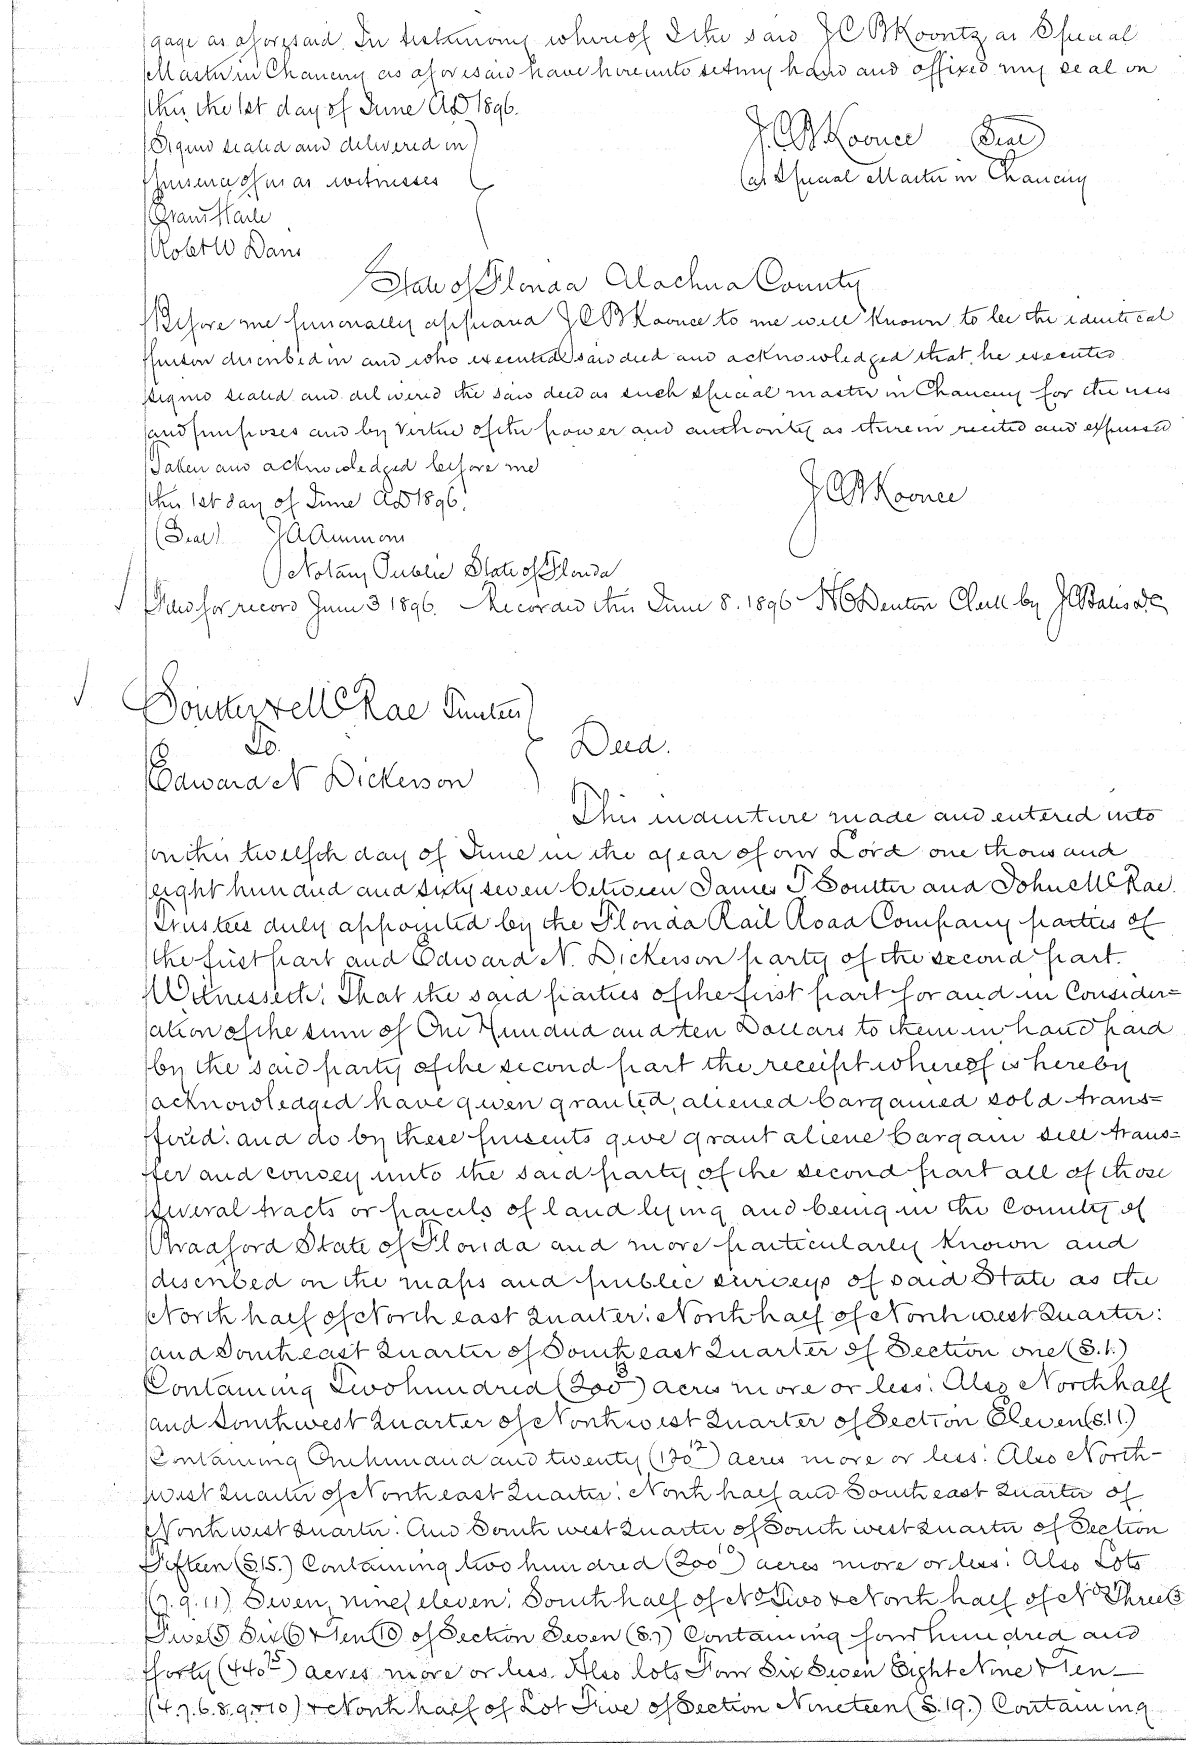 gage as aforesaid In testimony whereof I the said J C B Koontz as Special
Master in Chancery as aforesaid have hereunto set my hand and affixed my seal on
this the 1st day of June AD 1896.
Signed sealed and delivered in
presence of us as witnesses
J. C. B Koonce (Seal)
as Special Master in Chancery
Evans Haile
Robt W Davis
State of Florida Alachua County
Before me personally appeared J C B Koonce to me well known to be the identical
person described in and who executed said deed and acknowledged that he executed
signed sealed and delivered the said deed as such special master in Chancery for the uses
and purposes and by virtue of the power and authority as therein recited and expressed
Taken and acknowledged before me
this 1st day of June AD 1896.
J C B Koonce
(Seal) J A Ammons
Notary Public State of Florida
Filed for record June 3 1896. Recorded this June 8. 1896 H C Denton Clerk by J C Bales D.C.
Soutter & McRae Trustees
To
Deed.
Edward N Dickerson
This indenture made and entered into
on this twelfth day of June in the year of our Lord one thousand
eight hundred and sixty seven between James T Soutter and John McRae
Trustees duly appointed by the Florida Rail Road Company parties of
the first part and Edward N. Dickerson party of the second part.
Witnesseth: That the said parties of the first part for and in Consider=
ation of the sum of One Hundred and ten Dollars to them in hand paid
by the said party of the second part the receipt whereof is hereby
acknowledged have given granted, aliened bargained sold trans=
fered: and do by these presents give grant aliene bargain sell trans=
fer and convey unto the said party of the second part all of those
several tracts or parcels of land lying and being in the County of
Bradford State of Florida and more particularly known and
described on the maps and public surveys of said State as the
North half of North east Quarter: North half of North west Quarter:
and South east Quarter of South east Quarter of Section one (S.1.)
Containing Two hundred (200) acres more or less: Also North half
and South west Quarter of North west Quarter of Section Eleven (S.11.)
Containing One hundred and twenty (120) acres more or less: Also North-
west Quarter of North east Quarter: North half and South east Quarter of
North west Quarter: And South west Quarter of South west Quarter of Section
Fifteen (S.15.) Containing two hundred (200) acres more or less: Also Lots
(7. 9. 11) Seven, nine, eleven: South half of No Two & North half of No Three 3
Five 5 Six 6 & Ten 10 of Section Seven (S.7) Containing four hundred and
forty (440) acres more or less. Also lots Four Six Seven Eight Nine & Ten-
(4. 7. 6. 8. 9. & 10) & North half of Lot Five of Section Nineteen (S. 19.) Containing